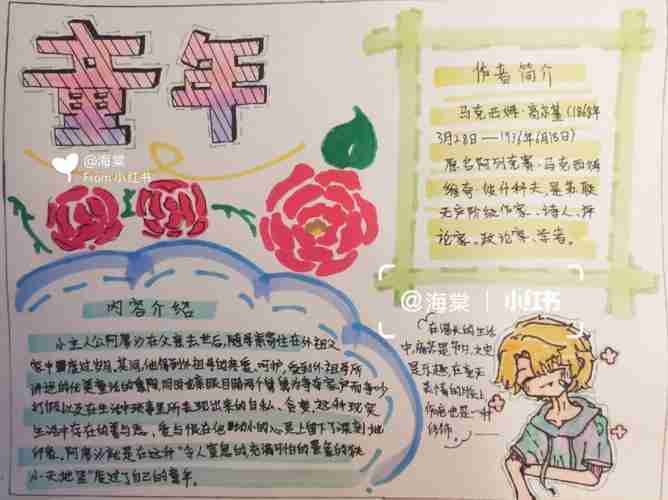 童年
@海棠
From 小红书
作者简介
马克西姆·高尔基(1868年
3月28日——1936年6月18日)
原名阿列克赛·马克西姆
维奇·彼什科夫,是苏联
无产阶级作家、诗人、评
论家、政论家、学者。
@海棠 | 小红书
内容介绍
小主人公阿廖沙在父亲去世后,随母亲寄住在外祖父
家中度过岁月。其间,他得到外祖母的疼爱、呵护,受到外祖母所
讲述的优美童话的熏陶,同时也亲眼目睹两个舅舅为争夺家产而争吵
打架以及在生活中琐事里所表现出来的自私、贪婪,这种现实
生活中存在的善与恶、爱与恨在他幼小的心灵上留下了深刻地
印象。阿廖沙就是在这种"令人窒息的充满可怕的景象的狭
小天地里"度过了自己的童年。
在漫长的生活
中,痛苦是节日,火灾
是乐趣,在毫无
表情的脸上,
伤痕也是一种
修饰。